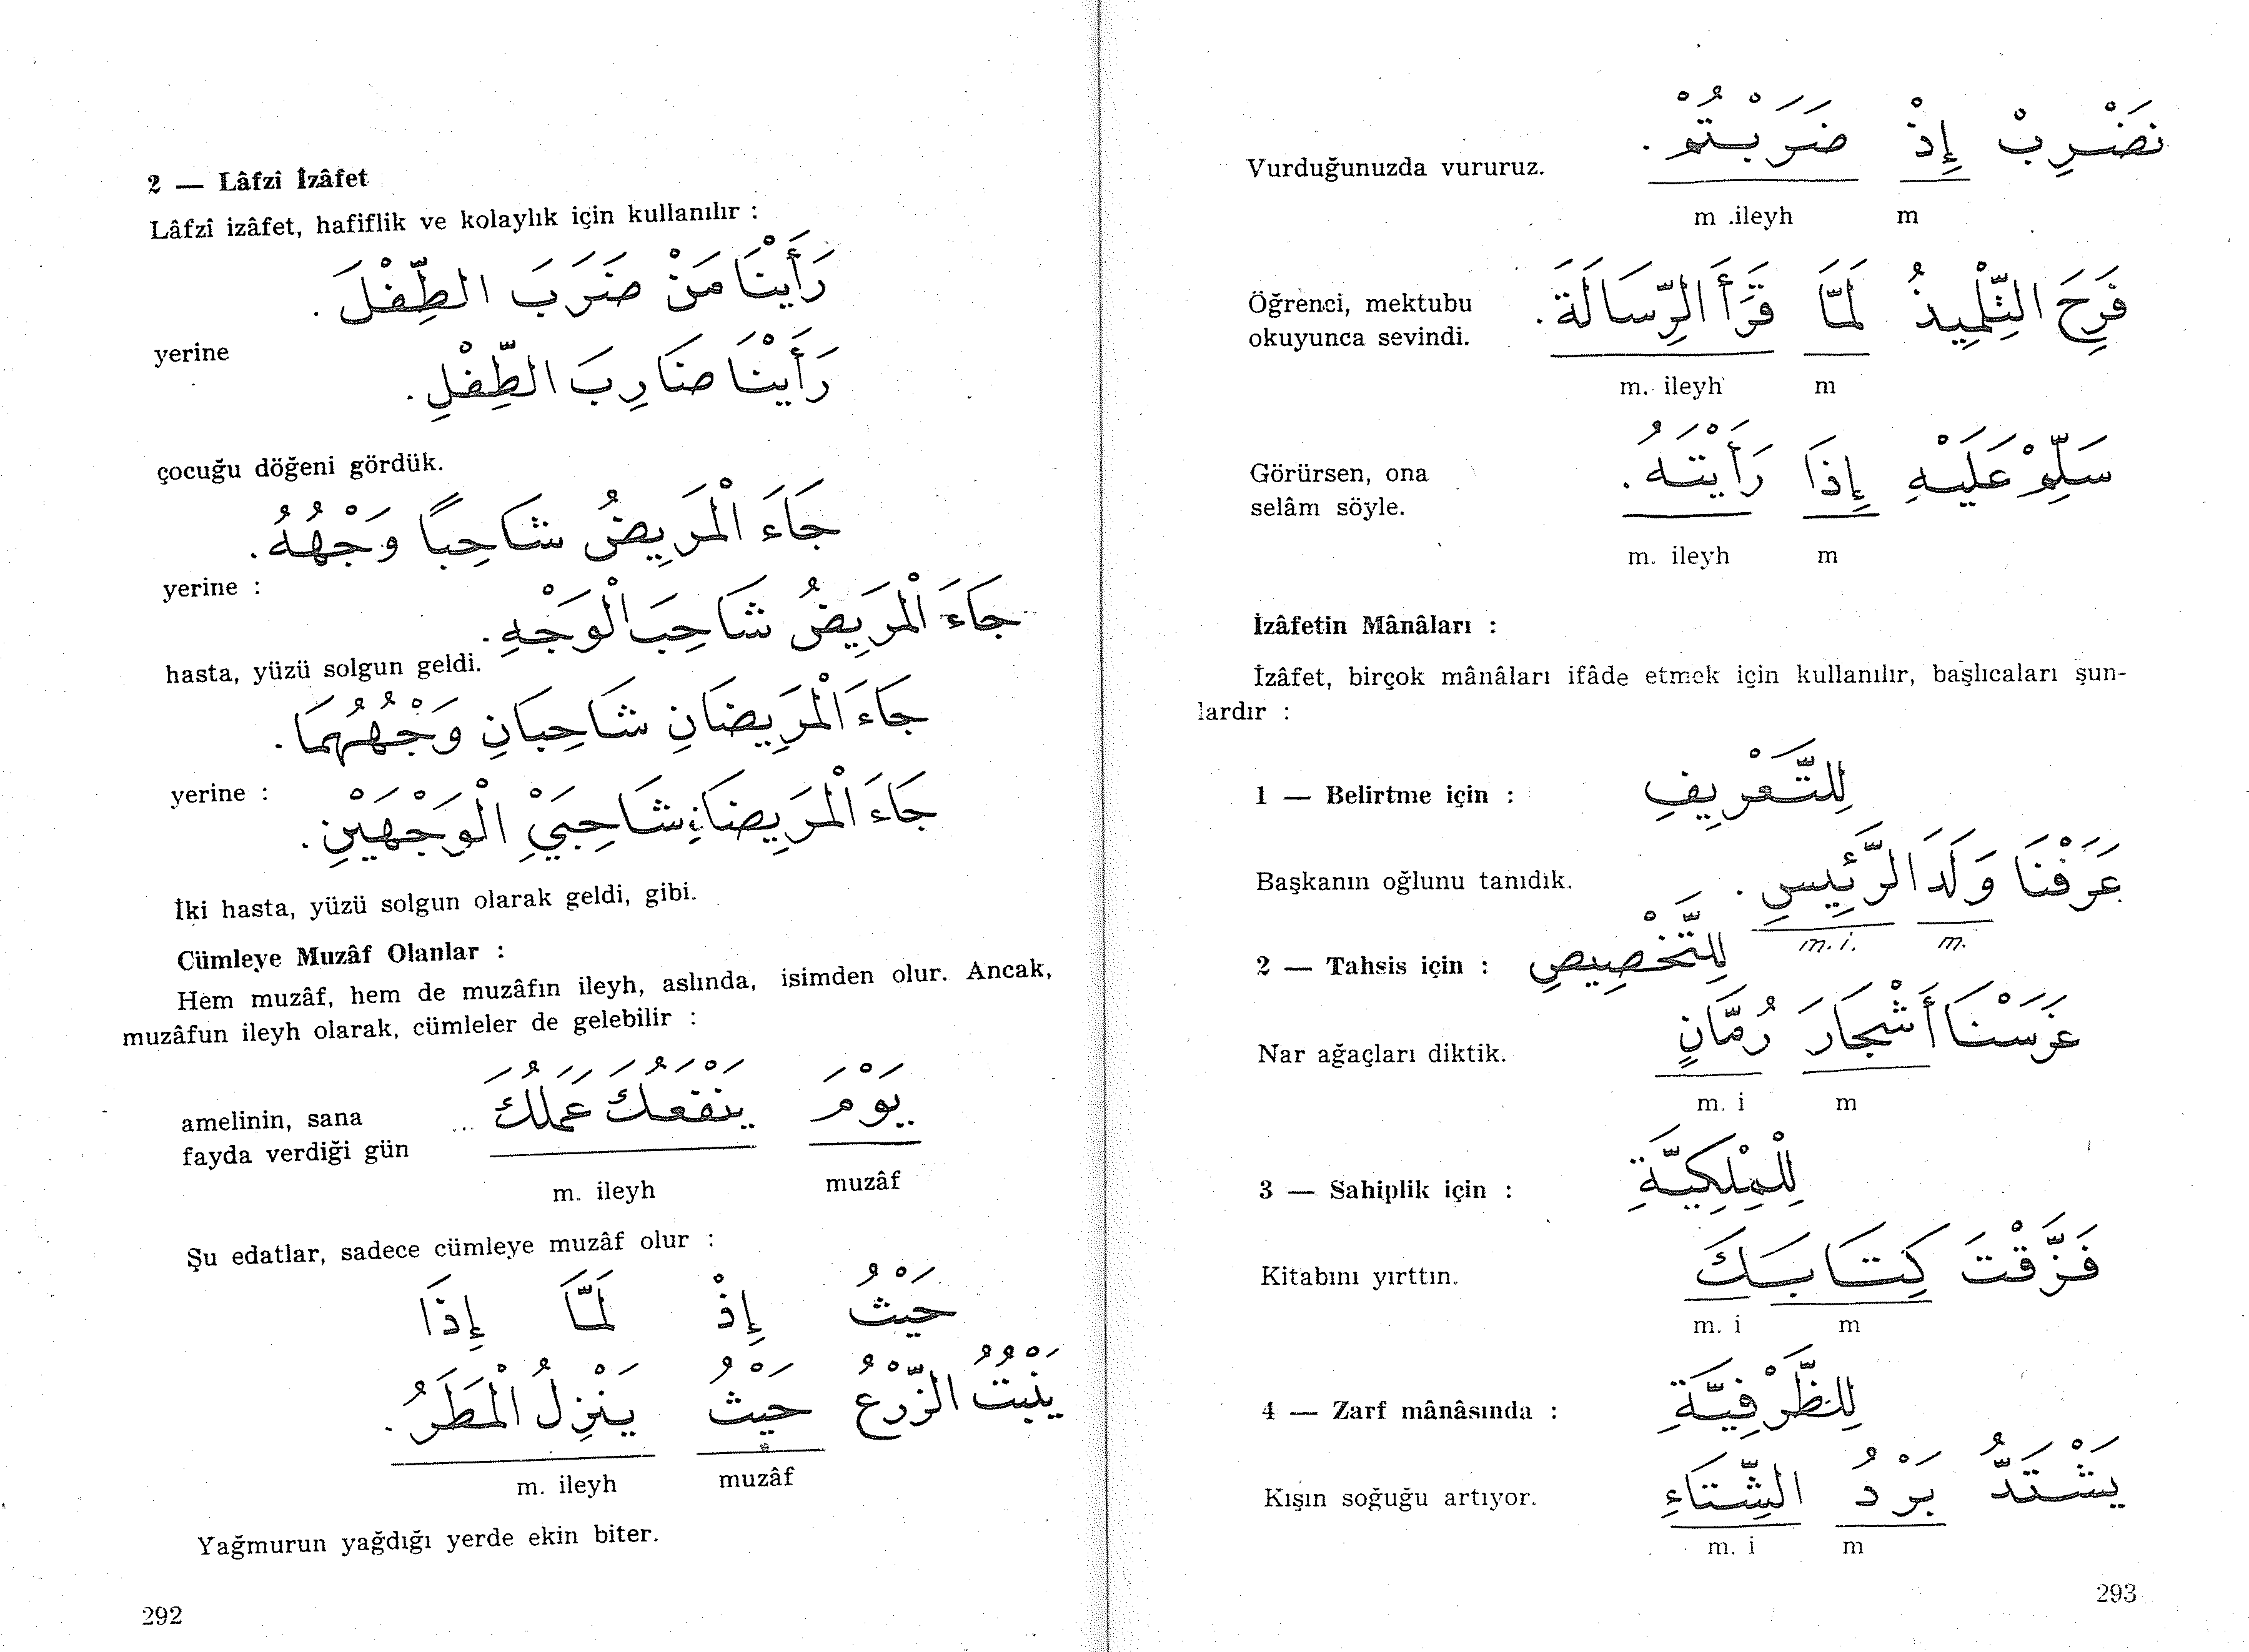 2 — Lâfzî İzâfet
Lâfzî izâfet, hafiflik ve kolaylık için kullanılır :
رَأَيْنَا مَنْ ضَرَبَ الطِّفْلَ .
yerine
رَأَيْنَا ضَارِبَ الطِّفْلِ .
çocuğu döğeni gördük.
جَاءَ الْمَرِيضُ شَاحِبًا وَجْهُهُ .
yerine :
جَاءَ الْمَرِيضُ شَاحِبَ الْوَجْهِ .
hasta, yüzü solgun geldi.
جَاءَ الْمَرِيضَانِ شَاحِبَانِ وَجْهُهُمَا .
yerine :
جَاءَ الْمَرِيضَانِ شَاحِبَيِ الْوَجْهَيْنِ .
İki hasta, yüzü solgun olarak geldi, gibi.
Cümleye Muzâf Olanlar :
Hem muzâf, hem de muzâfın ileyh, aslında, isimden olur. Ancak,
muzâfun ileyh olarak, cümleler de gelebilir :
يَوْمَ يَنْفَعُكَ عَمَلُكَ ...
amelinin, sana
fayda verdiği gün
m. ileyh muzâf
Şu edatlar, sadece cümleye muzâf olur :
حَيْثُ إِذْ لَمَّا إِذَا
يَنْبُتُ الزَّرْعُ حَيْثُ يَنْزِلُ الْمَطَرُ .
m. ileyh muzâf
Yağmurun yağdığı yerde ekin biter.
292
نَضْرِبْ إِذْ ضَرَبْتُمْ .
Vurduğunuzda vururuz.
m .ileyh m
فَرِحَ التِّلْمِيذُ لَمَّا قَرَأَ الرِّسَالَةَ .
Öğrenci, mektubu
okuyunca sevindi.
m. ileyh m
سَلِّمْ عَلَيْهِ إِذَا رَأَيْتَهُ .
Görürsen, ona
selâm söyle.
m. ileyh m
İzâfetin Mânâları :
İzâfet, birçok mânâları ifâde etmek için kullanılır, başlıcaları şun-
lardır :
1 — Belirtme için : لِلتَّعْرِيفِ
Başkanın oğlunu tanıdık. عَرَفْنَا وَلَدَ الرَّئِيسِ .
m. i. m.
2 — Tahsis için : لِلتَّخْصِيصِ
Nar ağaçları diktik. غَرَسْنَا أَشْجَارَ رُمَّانٍ
m. i m
3 — Sahiplik için : لِلْمِلْكِيَّةِ
Kitabını yırttın. مَزَّقْتَ كِتَابَكَ
m. i m
4 — Zarf mânâsında : لِلظَّرْفِيَّةِ
Kışın soğuğu artıyor. يَشْتَدُّ بَرْدُ الشِّتَاءِ
m. i m
293